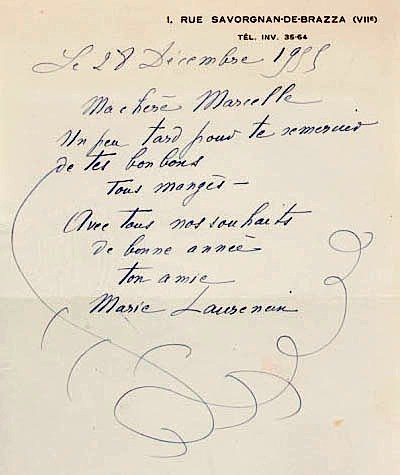 1, RUE SAVORGNAN-DE-BRAZZA (VIIe)
TÉL. INV. 35-64
Le 28 Décembre 1955
Ma chère Marcelle
Un peu tard pour te remercier
de tes bonbons
tous mangés —
Avec tous nos souhaits
de bonne année
ton amie
Marie Laurencin